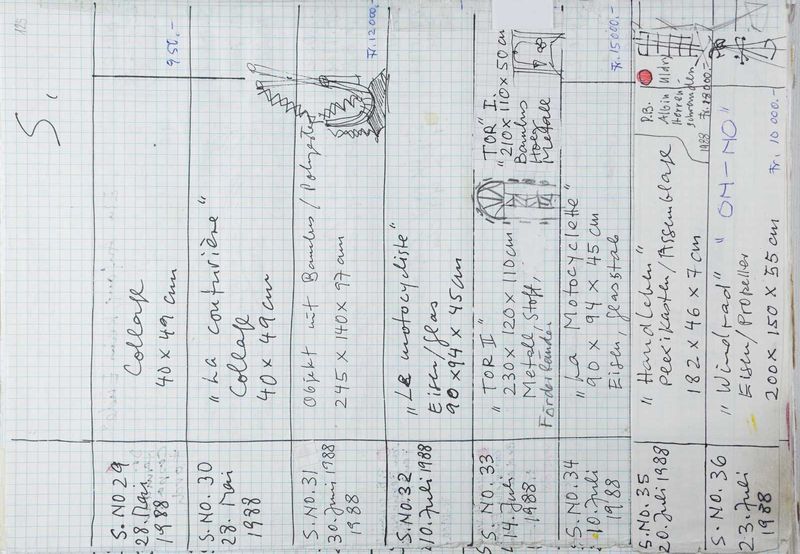 S.
S. NO 29
28. Mai
1988
Collage
40 x 49 cm
950.-
S. NO. 30
28. Mai
1988
"La couturière"
Collage
40 x 49 cm
S. NO. 31
30. Juni 1988
1988
Objekt mit Bambus / Polyester
245 x 140 x 97 cm
Fr. 12000.-
S. NO. 32
10. Juli 1988
"Le motocycliste"
Eisen/Glas
90 x 94 x 45 cm
S. NO. 33
14. Juli
1988
"TOR II"
230 x 120 x 110 cm
Metall, Stoff,
Förderbänder
"TOR" I.
210 x 110 x 50 cm
Bambus
Holz
Metall
S. NO. 34
10. Juli
1988
"La Motocyclette"
90 x 94 x 45 cm
Eisen, Glasstab
Fr. 15000.-
S. NO. 35
20. Juli 1988
"Handleben"
Plexikasten/Assemblage
182 x 46 x 7 cm
P.B.
Albin Uldry
Herren
schwanden
1988
S. NO. 36
23. Juli
1988
"Windrad" "OM-MO"
Eisen/Propeller
200 x 150 x 55 cm
Fr. 10 000.-